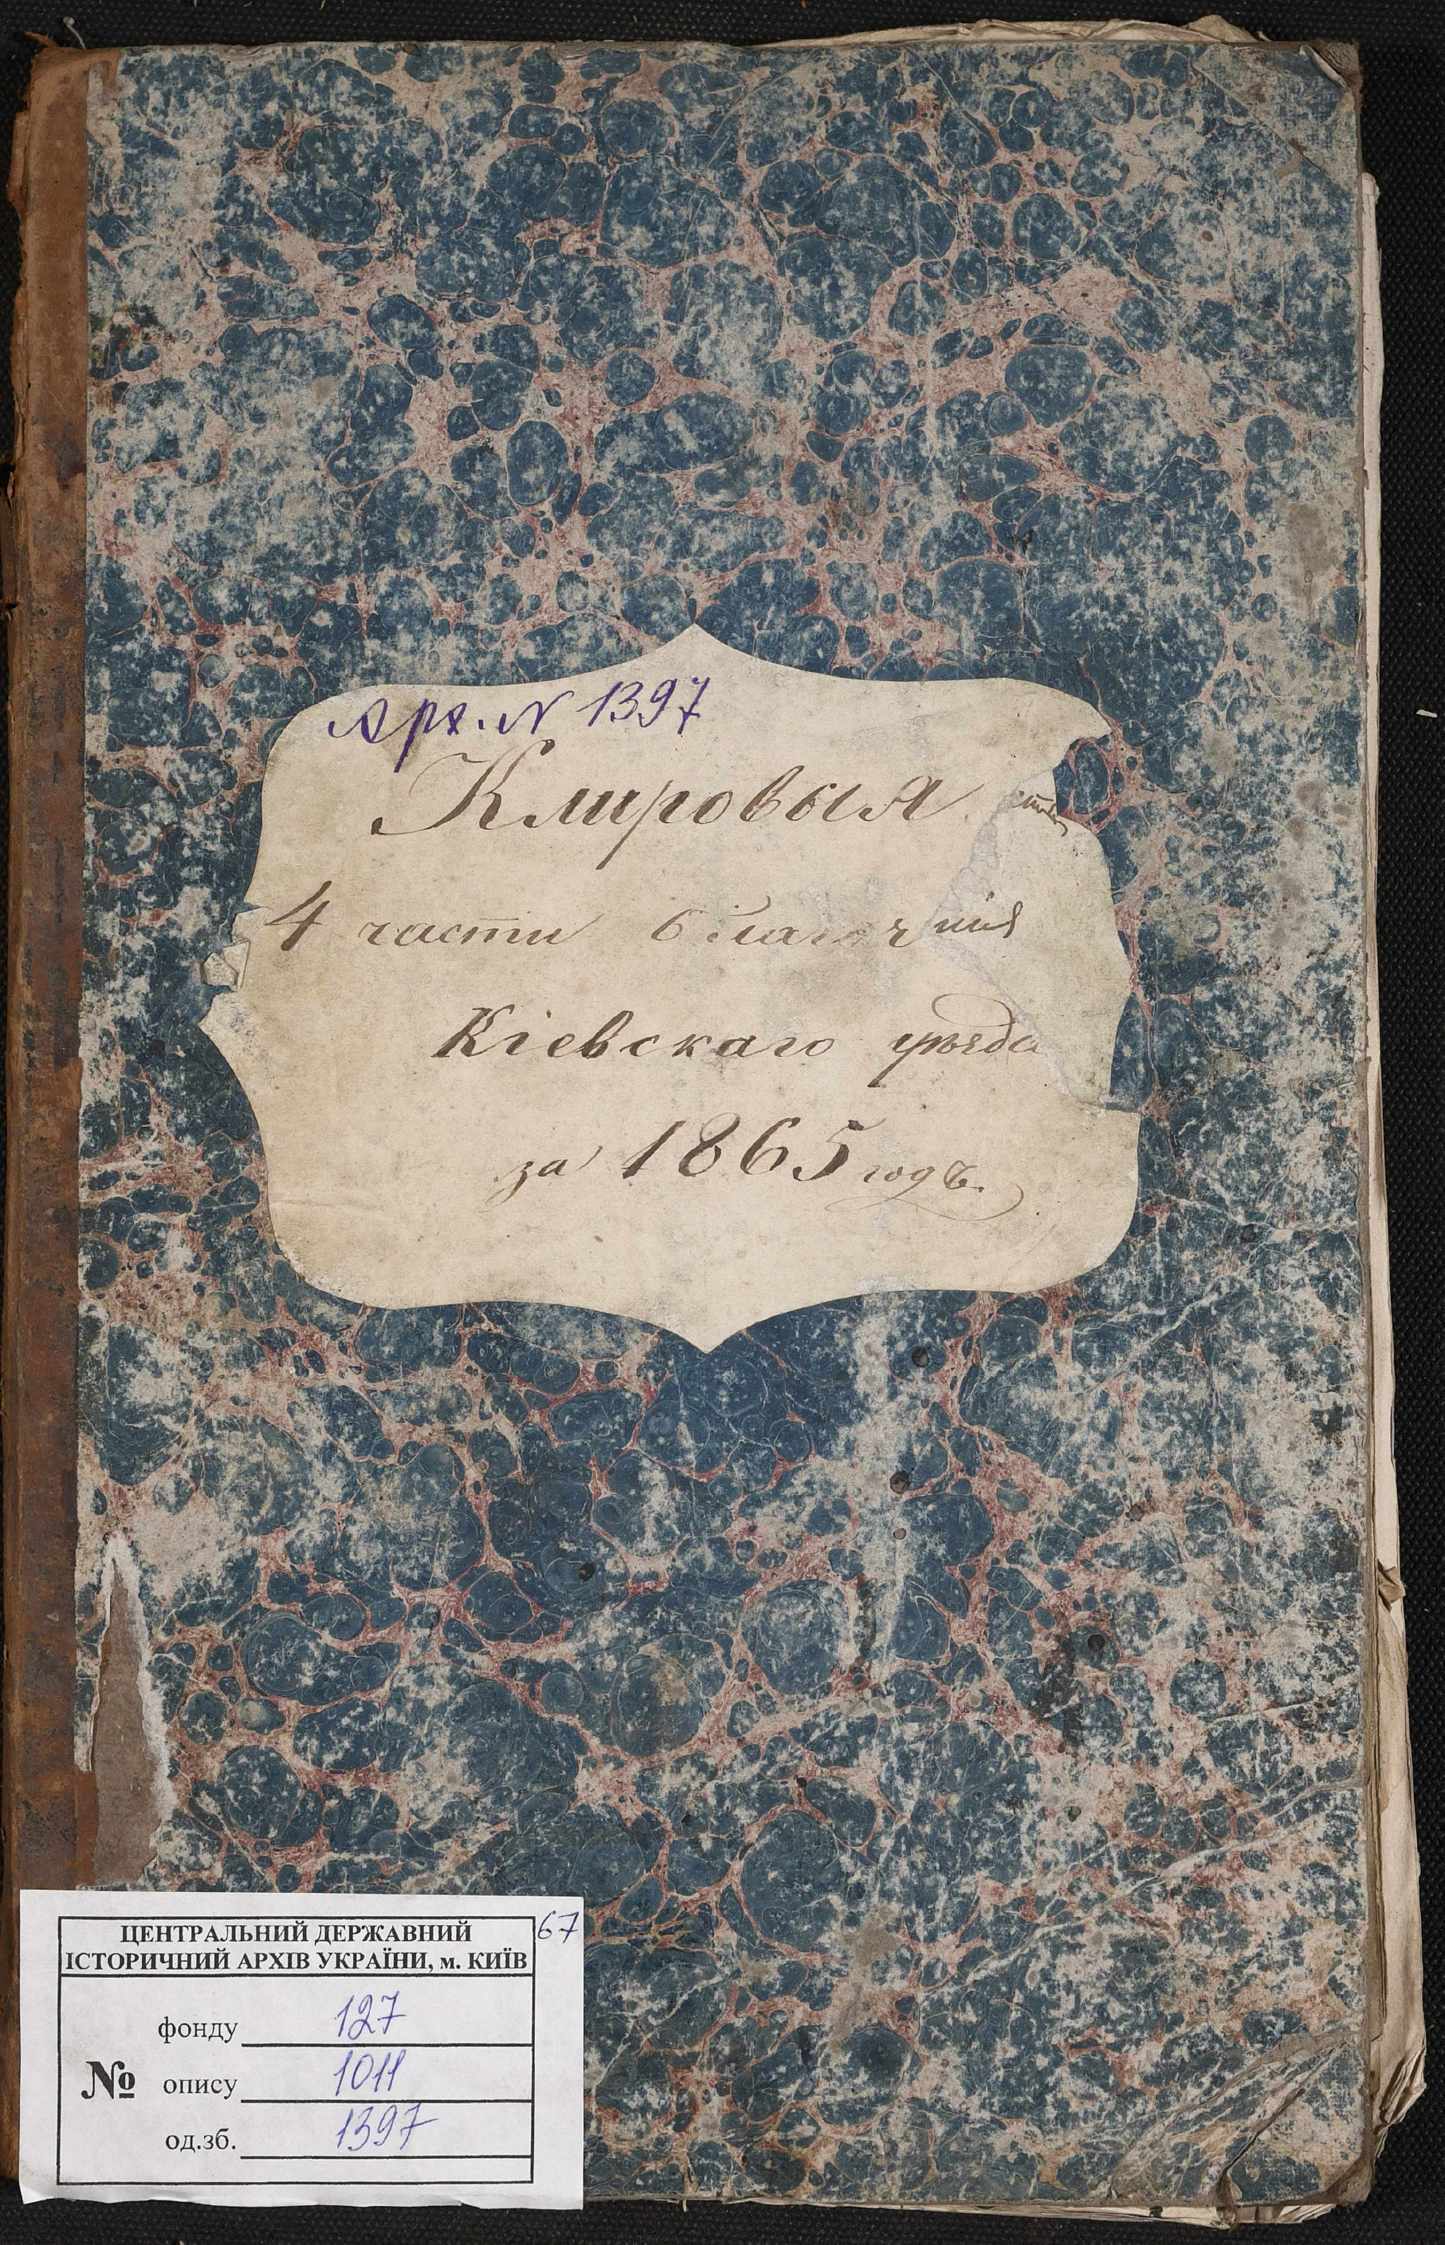 Арх. N 1397
Клировыя
4 части благоч ния
Кіевскаго уѣзда
за 1865 годъ.
67
ЦЕНТРАЛЬНИЙ ДЕРЖАВНИЙ
ІСТОРИЧНИЙ АРХІВ УКРАЇНИ, м. КИЇВ
фонду 127
№ опису 1011
од.зб. 1397